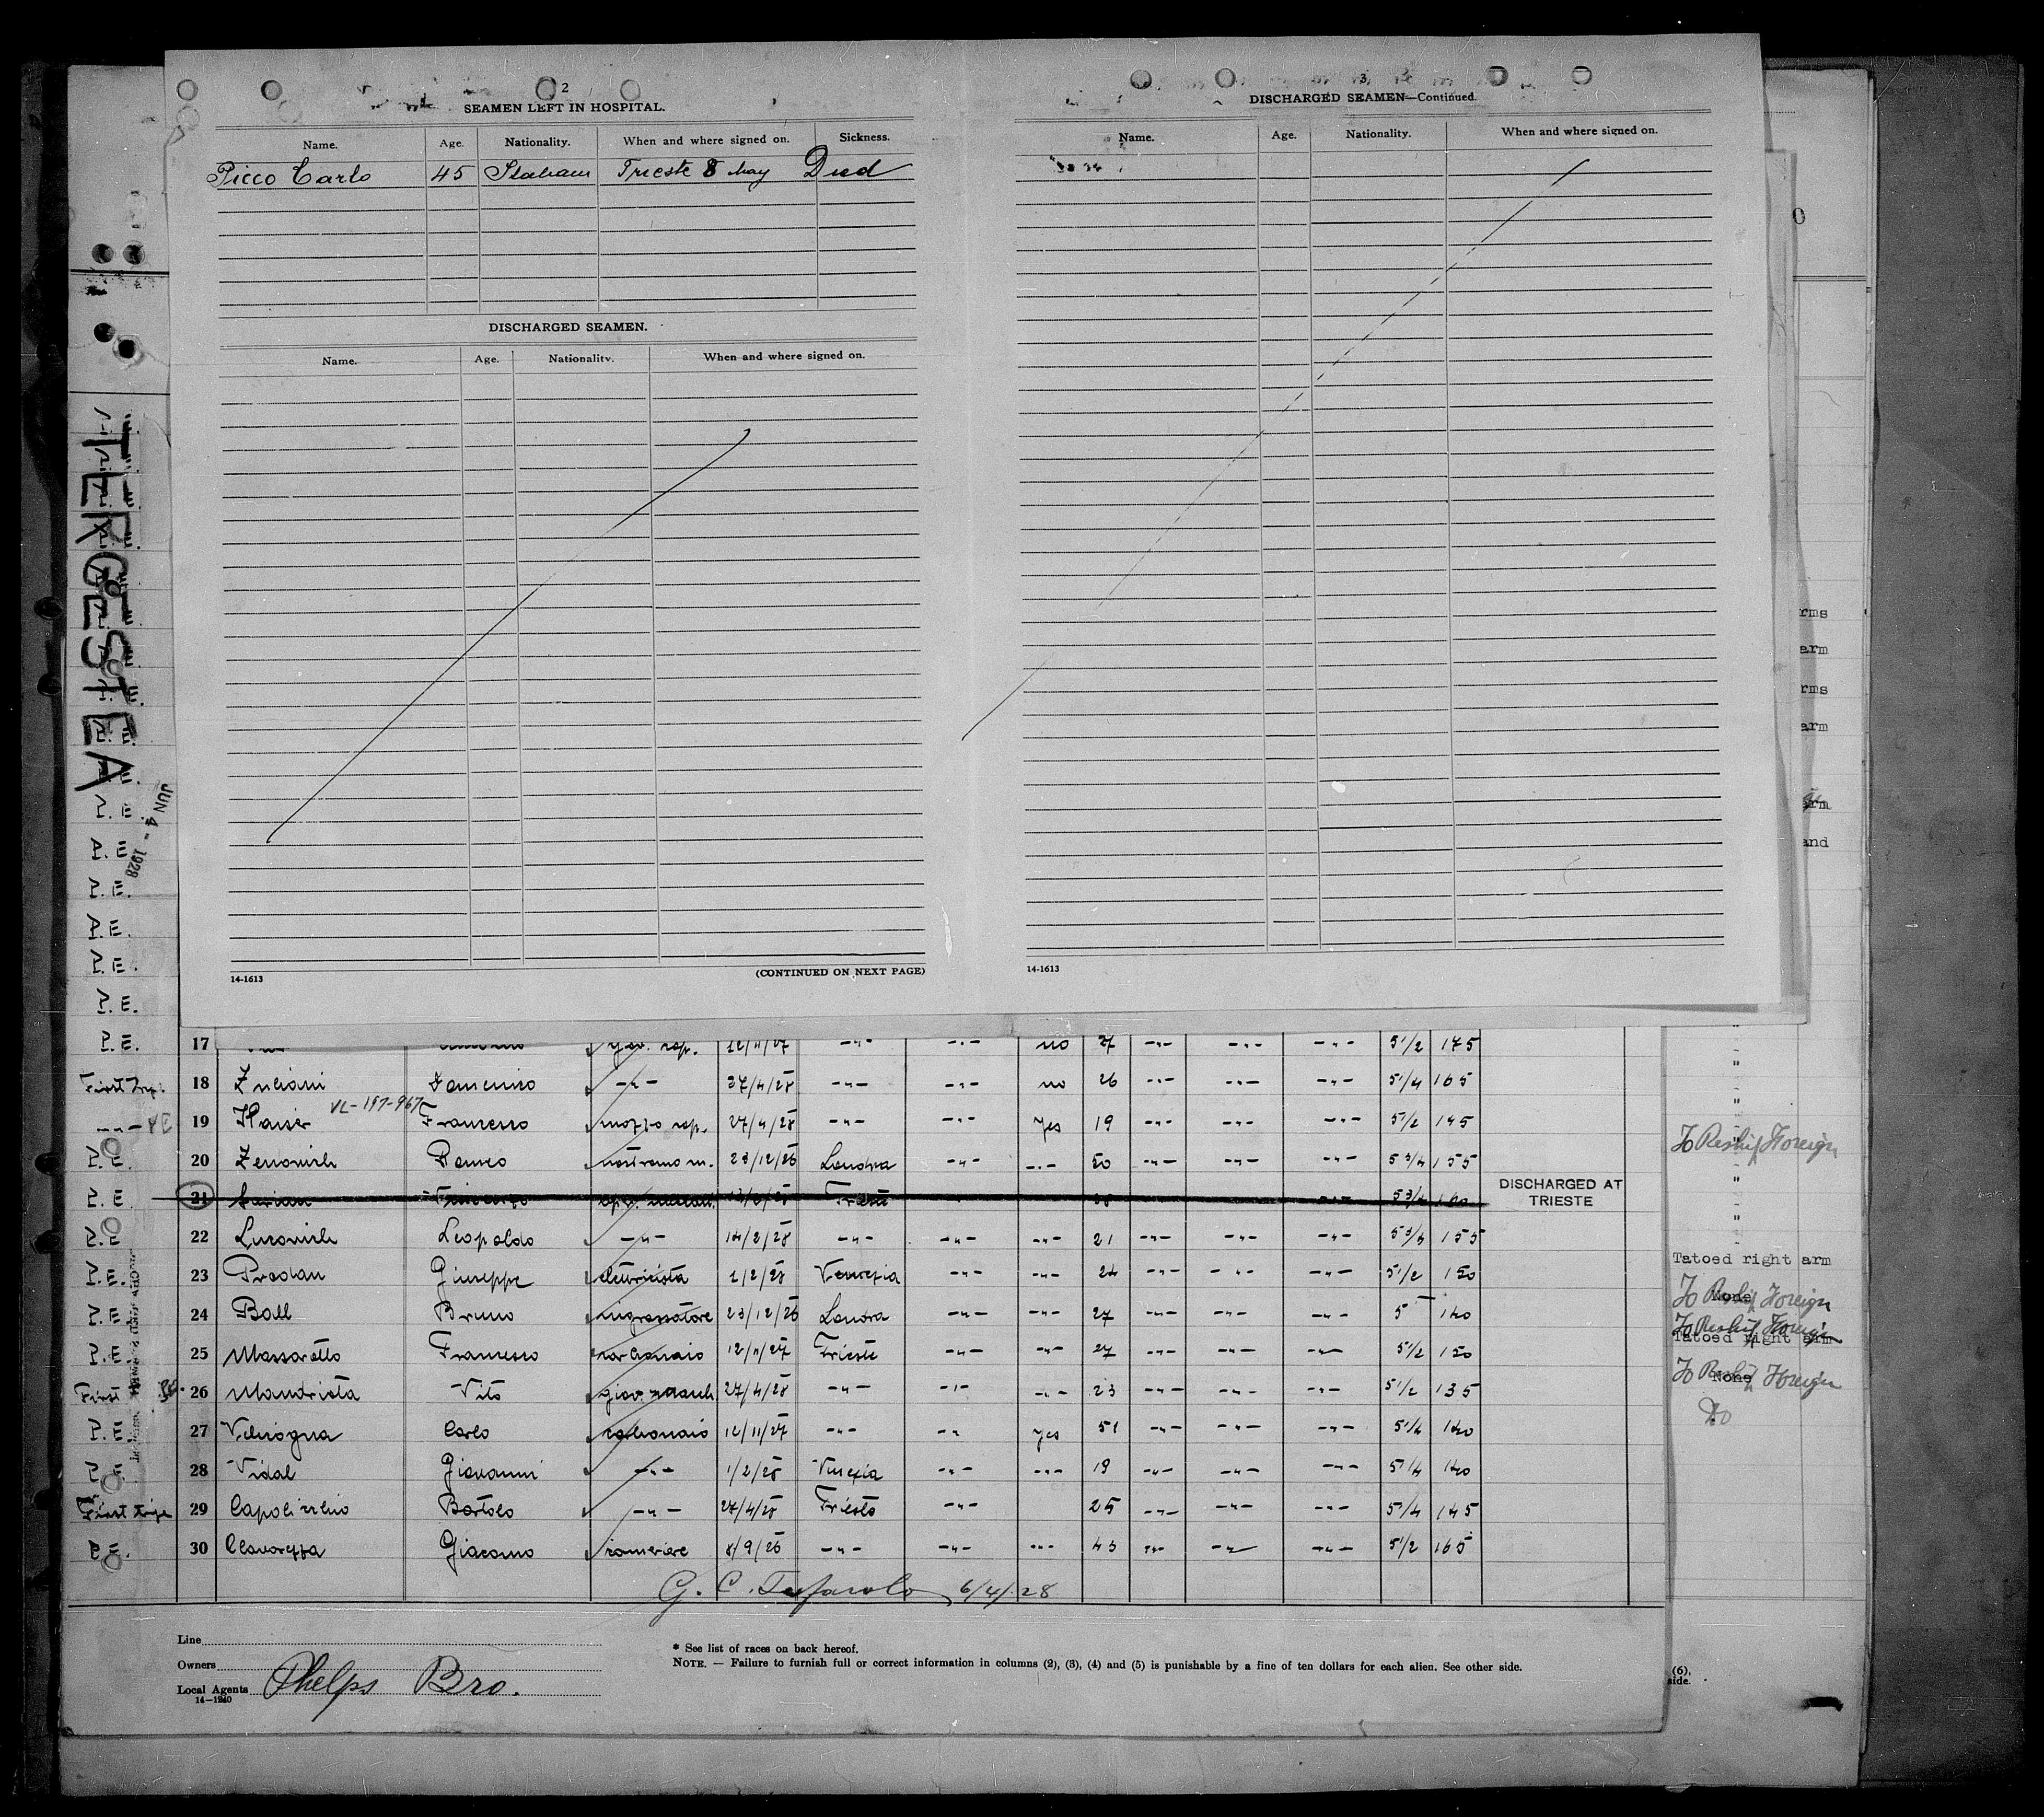 2
SEAMEN LEFT IN HOSPITAL.
Name. Age. Nationality. When and where signed on. Sickness.
Picco Carlo 45 Italian Trieste 8 May Died
DISCHARGED SEAMEN.
Name. Age. Nationality. When and where signed on.
14-1613 (CONTINUED ON NEXT PAGE)
3
DISCHARGED SEAMEN—Continued.
Name. Age. Nationality. When and where signed on.
14-1613
TERGESTEA
JUN 4 - 1928
P.E.
A.E
P.E.
P.E.
P.E.
P.E.
P.E. 17 no 27 -"- -"- -"- 5 1/2 175
First Trip. 18 Zuliani -"- 27/4/28 -"- -"- no 26 -"- -"- -"- 5 1/4 165
VL-197-967
-"- PE 19 Haiser Francesco mozzo 27/4/28 -"- -"- yes 19 -"- -"- -"- 5 1/2 145
P.E. 20 Romeo nostromo m. 23/12/26 Londra -"- -"- 50 -"- -"- -"- 5 3/4 155
P.E 21 Trieste -"- 5 3/4 160 DISCHARGED AT TRIESTE
P.E 22 Lucovich Leopoldo -"- 14/2/28 -"- -"- -"- 21 -"- -"- -"- 5 3/4 155
P.E. 23 Prodan Giuseppe elettricista 1/2/28 Venezia -"- -"- 24 -"- -"- -"- 5 1/2 150
P.E. 24 Boll Bruno ingrassatore 23/12/26 Londra -"- -"- 27 -"- -"- -"- 5 140
P.E. 25 Massarotto Francesco carbonaio 12/11/27 Trieste -"- -"- 27 -"- -"- -"- 5 1/2 150
First PE. 26 Mandriota Vito 27/4/28 -"- -"- -"- 23 -"- -"- -"- 5 1/2 135
P.E. 27 Carlo carbonaio 12/11/27 -"- -"- yes 51 -"- -"- -"- 5 1/4 140
P.E. 28 Vidal Giovanni -"- 1/2/28 Venezia -"- -"- 19 -"- -"- -"- 5 1/4 140
First trip 29 Capolicchio Bortolo -"- 27/4/28 Trieste -"- 25 -"- -"- -"- 5 1/4 145
P.E. 30 Giacomo cameriere 8/9/26 -"- -"- -"- 43 -"- -"- -"- 5 1/2 165
G. C. 6/4/28
Line
Owners
Local Agents Phelps Bro.
14-1240
* See list of races on back hereof.
NOTE. — Failure to furnish full or correct information in columns (2), (3), (4) and (5) is punishable by a fine of ten dollars for each alien. See other side.
0
rms
arm
rms
arm
arm
and
To Reship Foreign
Tatoed right arm
None
To Reship Foreign
Tatoed right arm
To Reship Foreign
None
To Reship Foreign
Do
(6),
side.